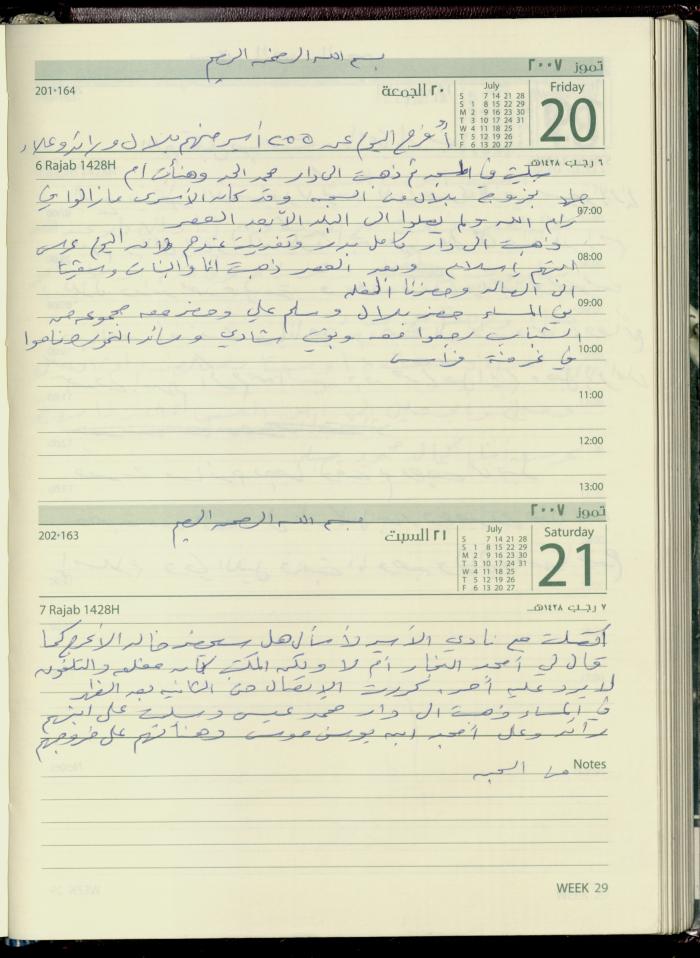 بسم الله الرحمن الرحيم
تموز ٢٠٠٧
201•164
٢٠ الجمعة
July
S 7 14 21 28
S 1 8 15 22 29
M 2 9 16 23 30
T 3 10 17 24 31
W 4 11 18 25
T 5 12 19 26
F 6 13 20 27
Friday
20
أُفرج اليوم عن ٢٥٥ أسير منهم بلال ورائد وعلاء
6 Rajab 1428H
٦ رجب ١٤٢٨هـ
صليت في المسجد ثم ذهبت الى دار محمد الحد وهنأت أم
بخروج بلال من السجن وقد كان الأسرى ما زالوا في
07:00
رام الله ولم يصلوا الى البلد الا بعد العصر
ذهبت الى دار كامل بدر وتغديت عندهم لأن اليوم عرس
08:00
ابنهم إسلام وبعد العصر ذهبت انا والبنات
الى الصالة وحضرنا الحفلة
09:00
في المساء حضر بلال وسلم علي وحضر معه مجموعة من
الشباب رجعوا معه وبقي شادي وسائد وناموا
10:00
في غرفة فراس
11:00
12:00
13:00
بسم الله الرحمن الرحيم
تموز ٢٠٠٧
202•163
٢١ السبت
July
S 7 14 21 28
S 1 8 15 22 29
M 2 9 16 23 30
T 3 10 17 24 31
W 4 11 18 25
T 5 12 19 26
F 6 13 20 27
Saturday
21
7 Rajab 1428H
٧ رجب ١٤٢٨هـ
اتصلت مع نادي الأسير لأسأل هل سيحضر خالد الأعرج كما
قال لي أمجد النجار أم لا ولكن المكتب كان مغلق والتلفون
لا يرد عليه أحد. كررت الإتصال حتى الثانية بعد الظهر
في المساء ذهبت الى دار محمد عيسى وسلمت على ابنهم
رائد وعلى أمجد ابن يوسف موسى وهنأتهم على خروجهم
من السجن
Notes
WEEK 29